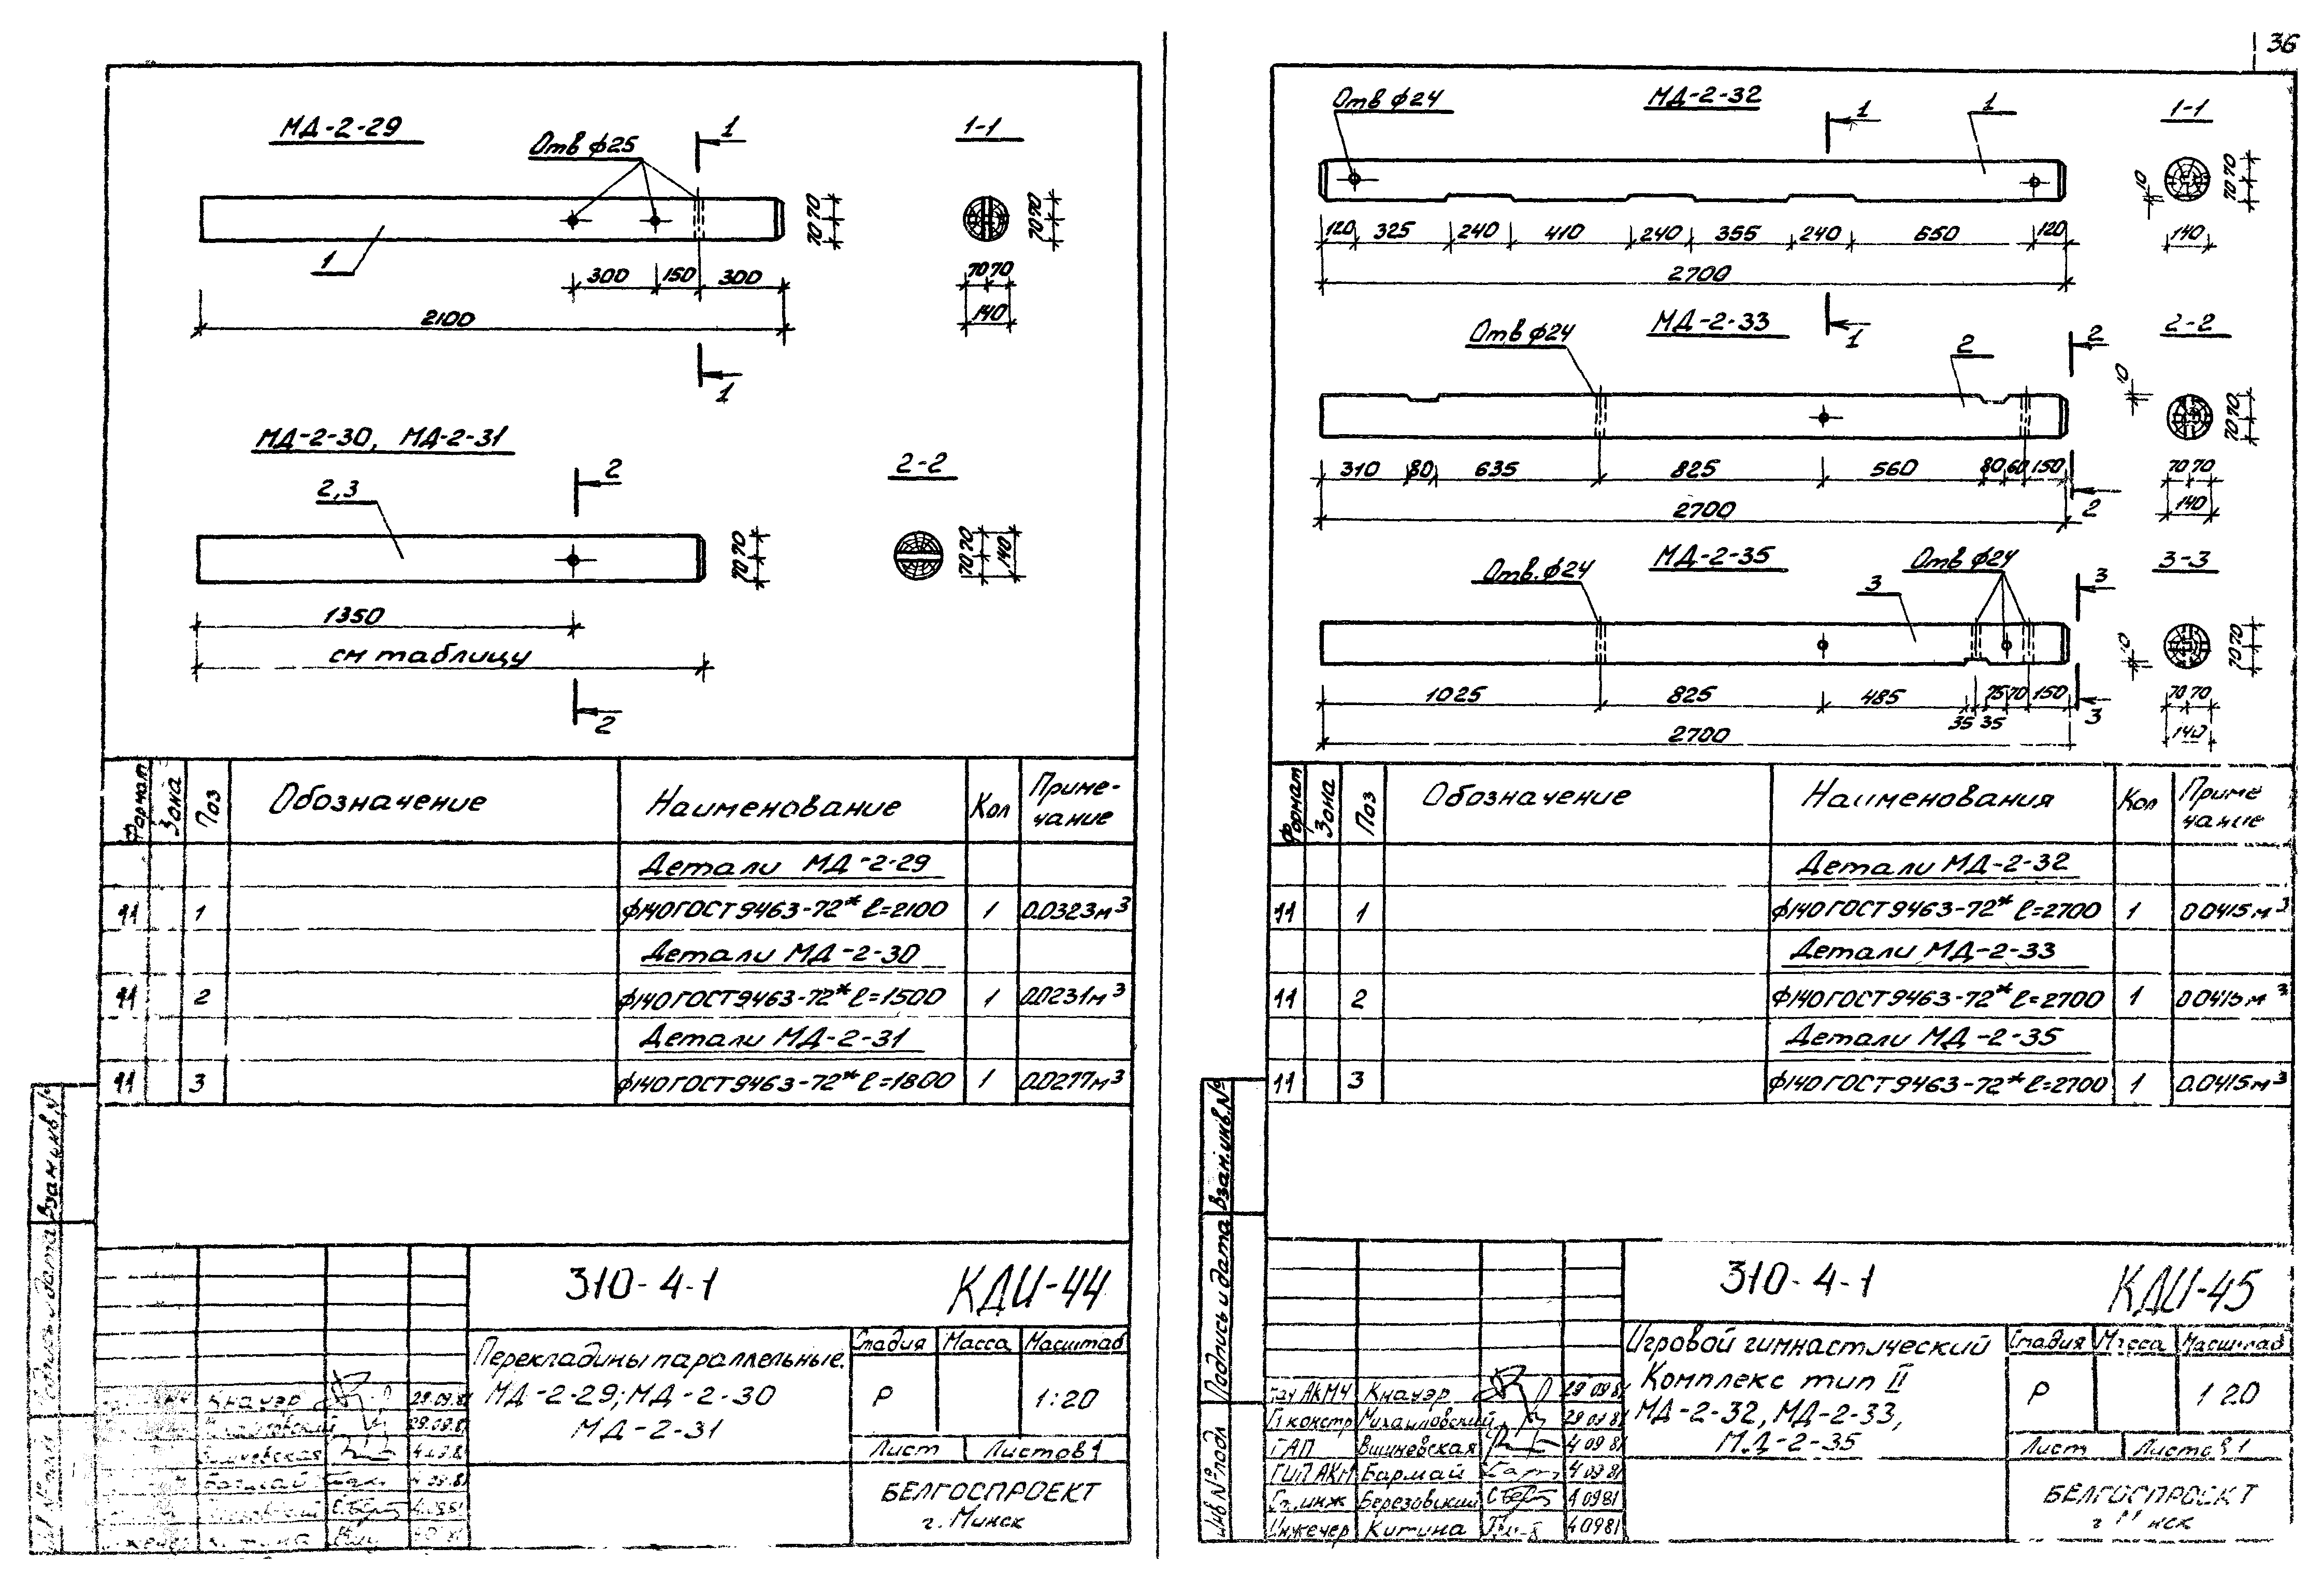 36
МД-2-29
Отв ϕ25
1
1-1
1
70 70
70 70
300 150 300
70 70
140
2100
1
МД-2-30, МД-2-31
2,3
2
2-2
70 70
70 70
140
1350
см таблицу
2
Формат Зона Поз Обозначение Наименование Кол Приме-
чание
Детали МД-2-29
11 1 ϕ140 ГОСТ 9463-72* ℓ=2100 1 0.0323 м³
Детали МД-2-30
11 2 ϕ140 ГОСТ 9463-72* ℓ=1500 1 0.0231 м³
Детали МД-2-31
11 3 ϕ140 ГОСТ 9463-72* ℓ=1800 1 0.0277 м³
Взам инв №
310-4-1 КДИ-44
Перекладины параллельные.
МД-2-29; МД-2-30
МД-2-31
Стадия Масса Масштаб
Р 1:20
Лист Листов 1
БЕЛГОСПРОЕКТ
г. Минск
Кнауэр 29.09.81
29.09.81
Отв ϕ24
МД-2-32
1
1
1-1
10
70 70
120 325 240 410 240 355 240 650 120
140
2700
1
Отв ϕ24
МД-2-33
2
2
2-2
10
70 70
310 80 635 825 560 80 60 150
70 70
140
2700
2
Отв. ϕ24
МД-2-35
3
Отв ϕ24
3
3-3
10
70 70
1025 825 485 75 70 150
35 35
70 70
140
2700
3
Формат Зона Поз Обозначение Наименования Кол Приме
чание
Детали МД-2-32
11 1 ϕ140 ГОСТ 9463-72* ℓ=2700 1 0.0415 м³
Детали МД-2-33
11 2 ϕ140 ГОСТ 9463-72* ℓ=2700 1 0.0415 м³
Детали МД-2-35
11 3 ϕ140 ГОСТ 9463-72* ℓ=2700 1 0.0415 м³
Взам. инв. №
Подпись и дата
Инв № подл
310-4-1 КДИ-45
Игровой гимнастический
Комплекс тип II
МД-2-32, МД-2-33,
МД-2-35
Стадия Масса Масштаб
Р 1 20
Лист Листов 1
БЕЛГОСПРОЕКТ
Кнауэр 29 09 81
Гл констр Михайловский 29 09 81
ГАП Вишневская 4 09 81
ГИП АКМ Бармай 4 09 81
Ст. инж Березовский 4 09 81
Инженер Китина 4 09 81